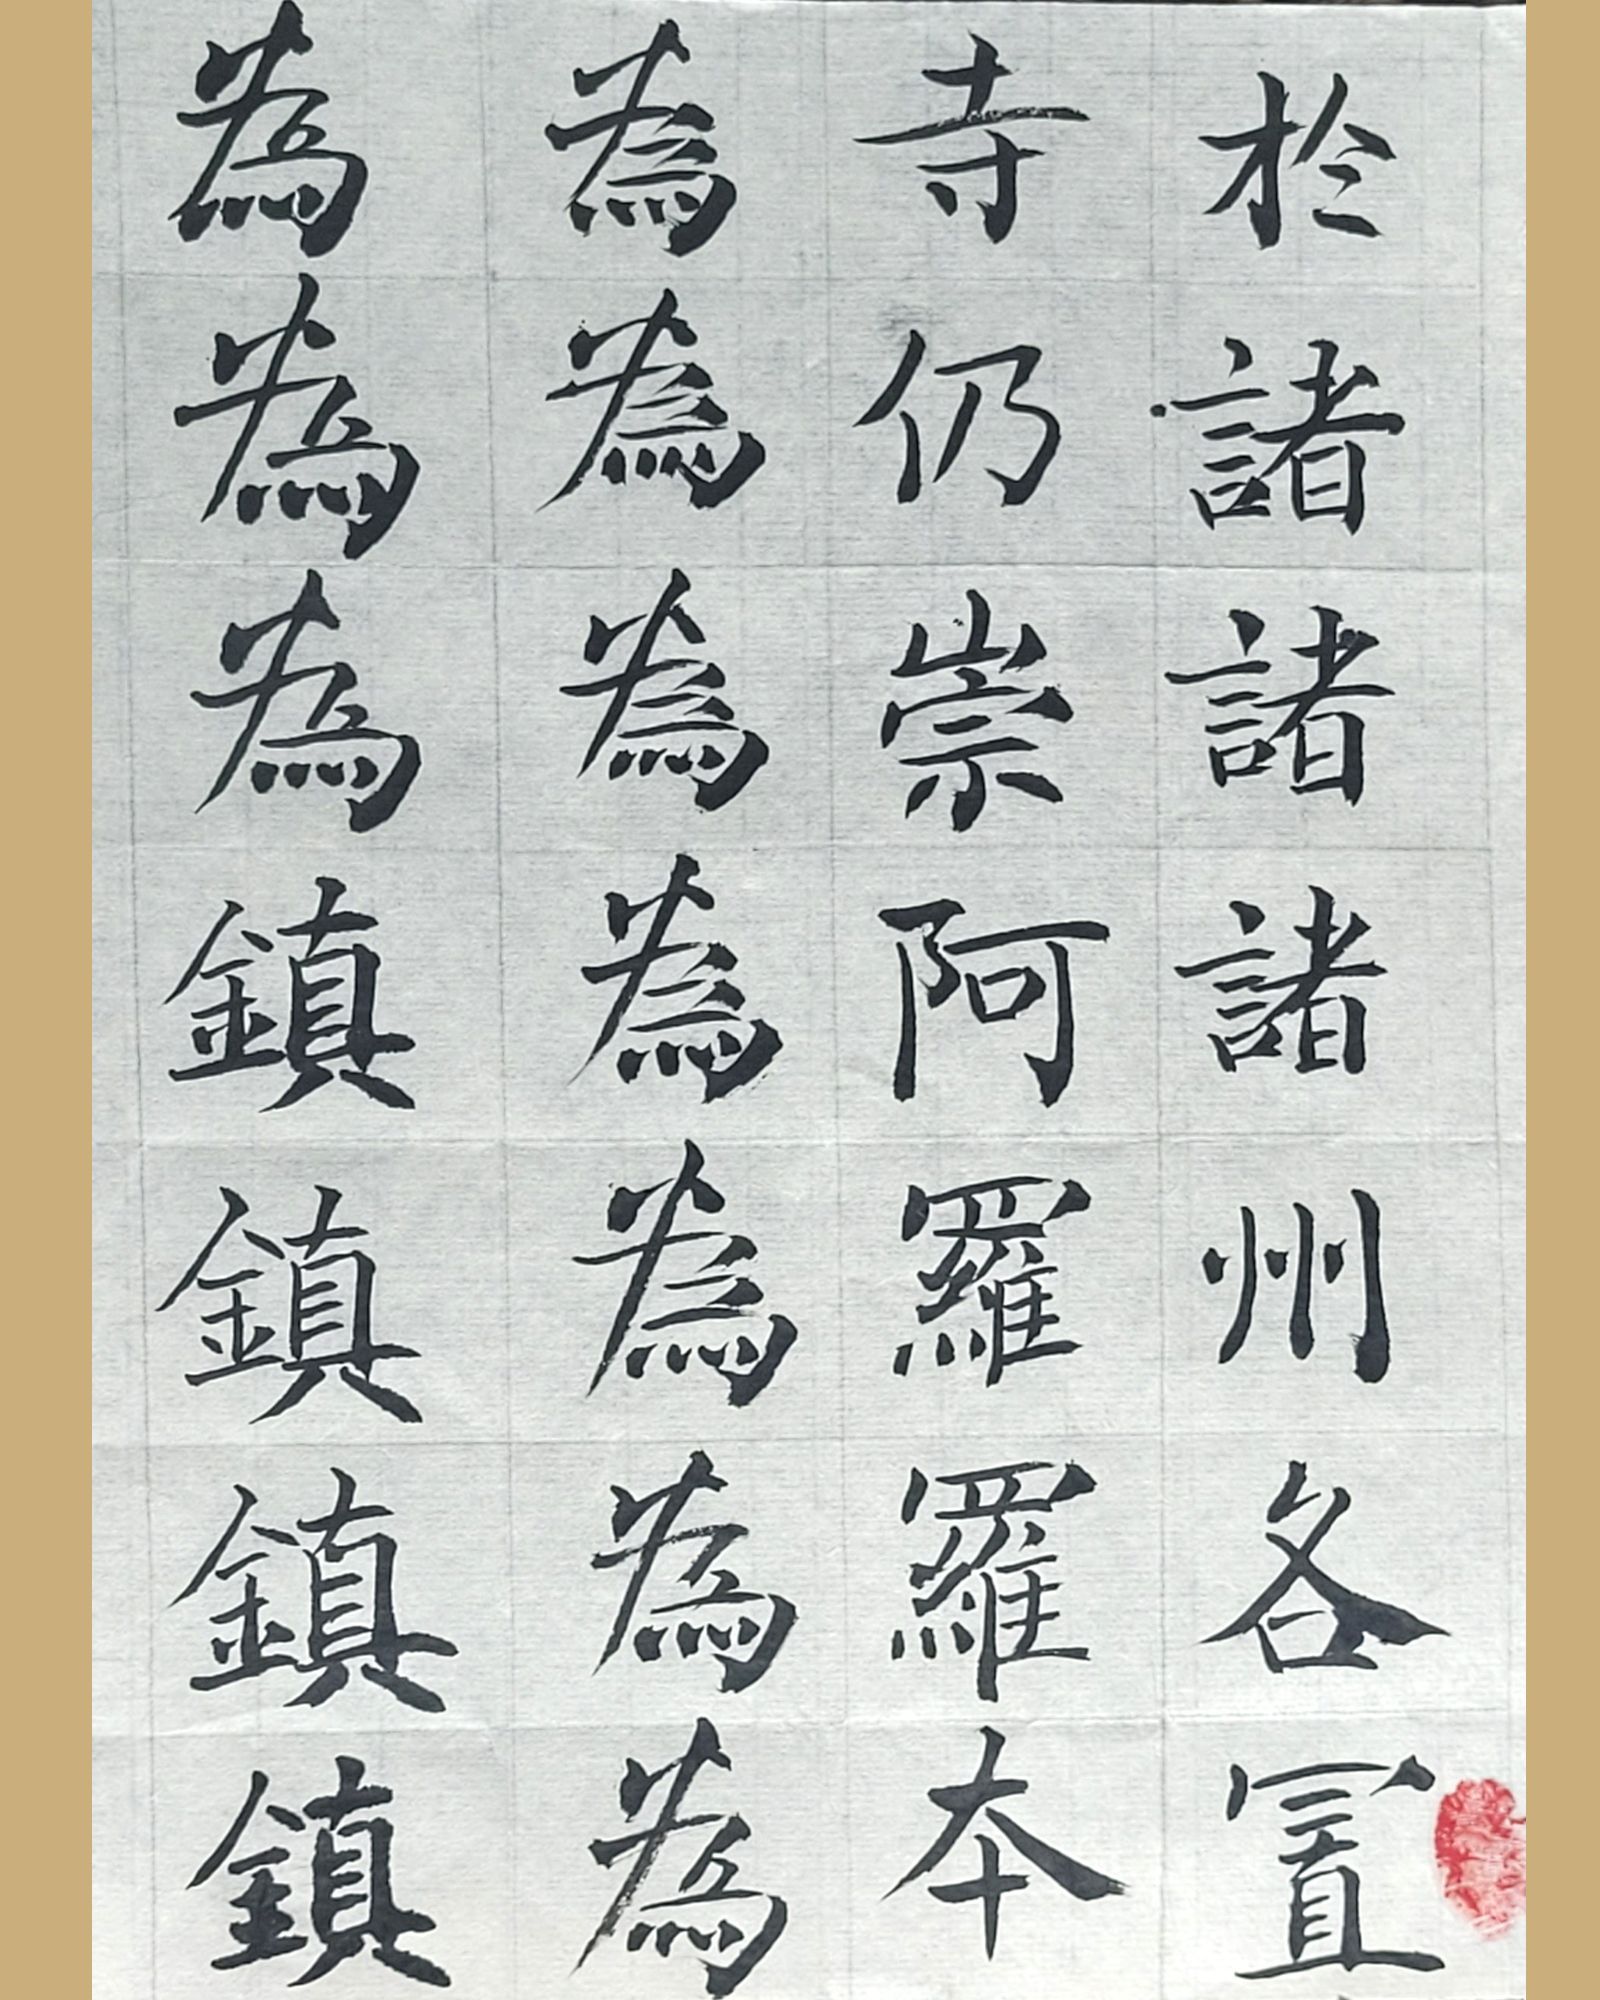 於諸諸諸州各置
寺仍崇阿羅羅本
為為為為為為為
為為為鎮鎮鎮鎮